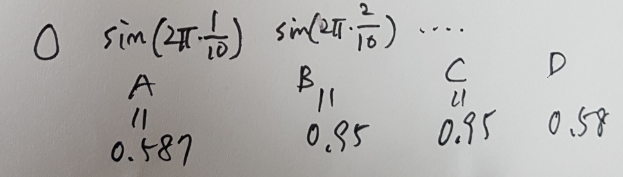 0 sin(2π·1/10) sin(2π·2/10) ····
A B C D
|| || ||
0.587 0.95 0.95 0.58